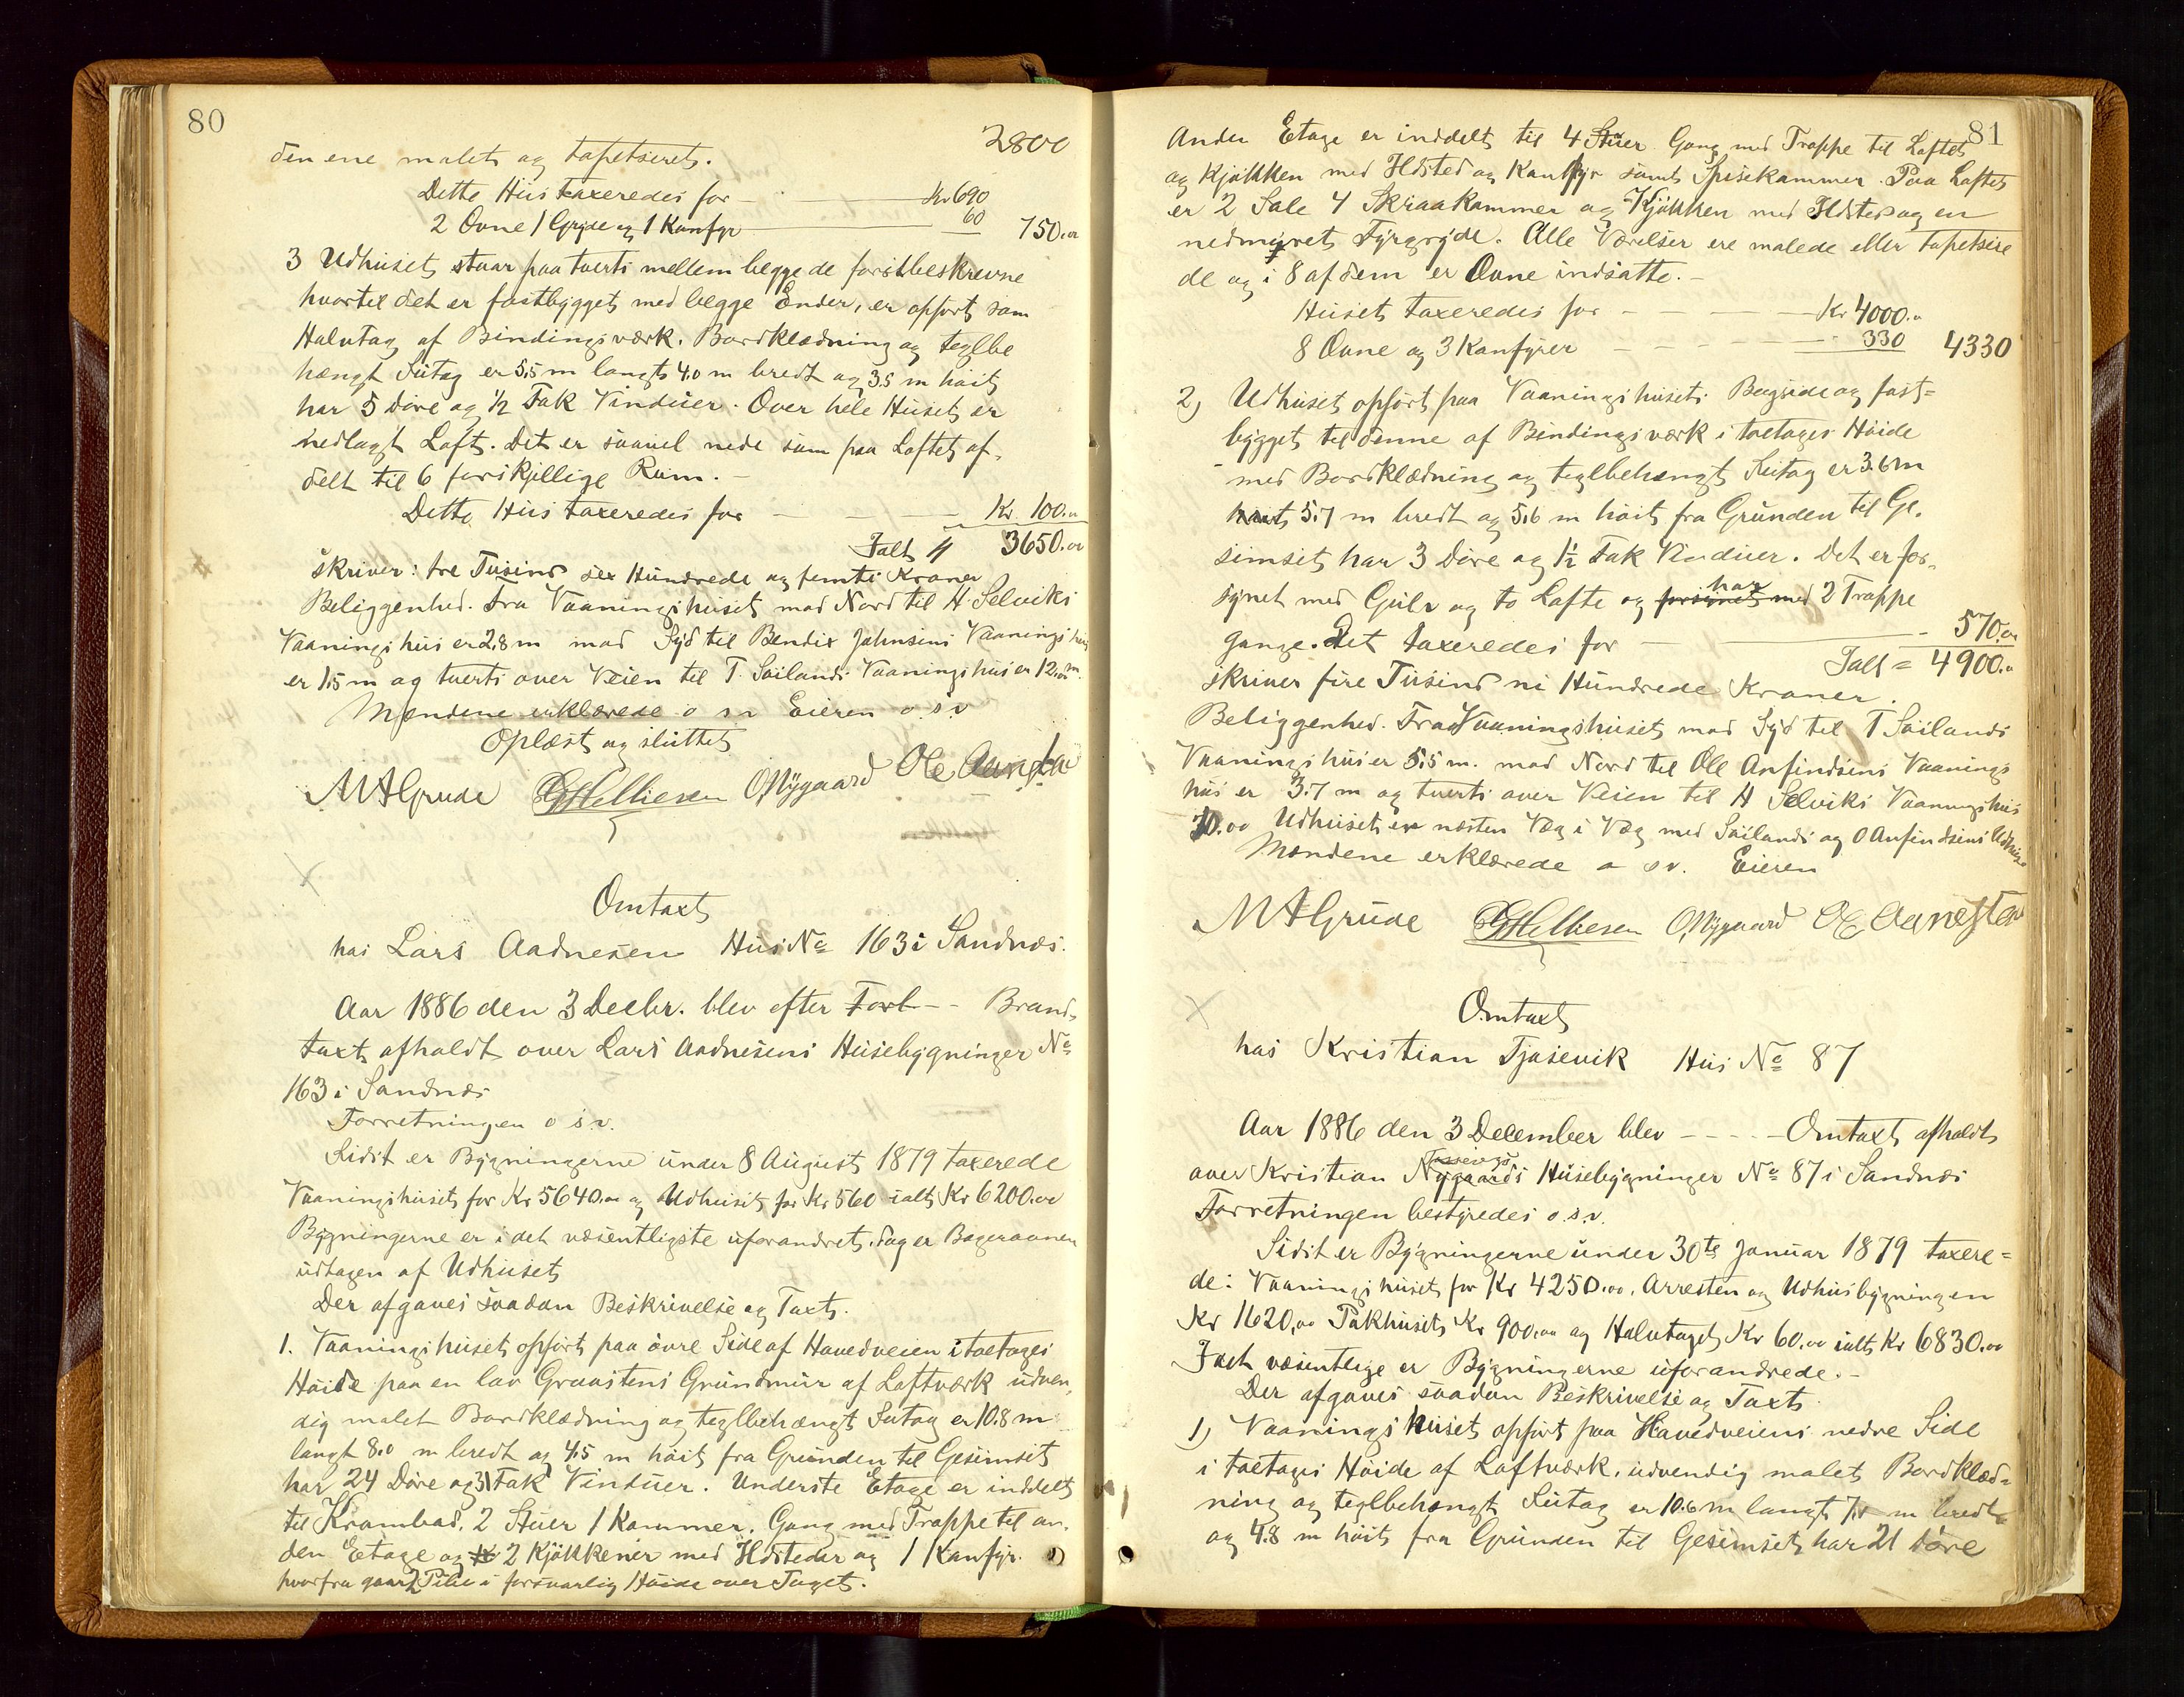 80
2800
den ene malet og tapetseret.
Dette Hus taxeredes for — Kr 690
2 Ovne 1 Gryde og 1 Kamfyr — 60 750.00
3 Udhuset staar paa tverts mellem begge de forstbeskrevne
hvortil det er fastbygget med begge Ender, er opført som
Halvtag af Bindingsværk. Bordklædning og teglbe
hængt Sutag er 5,5 m langt 4.0 m bredt og 3.5 m höit
har 5 Döre og 1/2 Fak Vinduer. Over hele Huset er
nedlagt Loft. Det er saavel nede som paa Loftet af,
delt til 6 forskjellige Rum. –
Dette Hus taxeredes for — Kr. 100.00
Ialt " 3650.00
skriver: tre Tusind sex Hundrede og femti Kroner
Beliggenhed. Fra Vaaningshuset mod Nord til H. Selviks
Vaaningshus er 2,8 m mod Syd til Bendix Johnsens Vaaningshus
er 1,5 m og tverts over Veien til T. Soilands Vaaningshus er 12,00 m.
Mændene erklærede o s v Eieren o.s.v
Oplæst og sluttet
M A Grude GHelliesen O Nygaard Ole Aanestad
Omtaxt
hos Lars Aadnesen Hus No 163 i Sandnæs.
Aar 1886 den 3 Decbr. blev efter Forl – – Brand,
taxt afholdt over Lars Aadnesens Husebygninger No
163 i Sandnæs
Forretningen o s.v.
Sidst er Bygningerne under 8 August 1879 taxerede
Vaaningshuset for Kr 5640.00 og Udhuset for Kr 560 ialt Kr 6200.00
Bygningerne er i det væsentligste uforandret, dog er Bagerovnen
udtagen af Udhuset
Der afgaves saadan Beskrivelse og Taxt.
1. Vaaningshuset opfört paa övre Side af Hovedveien i toetages
Höide paa en lav Graastens Grundmur af Loftværk udven,
dig malet Bordklædning og teglbehængt Sutag er 10.8 m
langt 8.0 m bredt og 4,5 m höit fra Grunden til Gesimset
har 24 Döre og 31 Fak Vinduer. Underste Etage er inddelt
til Krambod, 2 Stuer 1 Kammer. Gang med Trappe til an,
den Etage og 2 Kjøkkener med Ildsteder og 1 Kamfyr.
hvorfra gaar 2 Piber i forsvarlig Höide over Taget.
81
Anden Etage er inddelt til 4 Stuer Gang med Trappe til Loftet
og Kjøkken med Ildsted og Kamfyr samt Spisekammer. Paa Loftet
er 2 Sale 4 Skraakammer og Kjøkken med Ildsted og en
nedmuret Fyrgryde. Alle Værelser ere malede eller tapetsere
de og i 8 af dem er Ovne indsatte. –
Huset taxeredes for – – – Kr 4000.00
8 Ovne og 3 Kamfyrer – – – 330 4330
2) Udhuset opfört paa Vaaningshusets Bagside og fast=
bygget til denne af Bindingsværk i toetages Höide
med Bordklædning og teglbehængt Sutag er 3.6 m
5.7 m bredt og 5.6 m höit fra Grunden til Ge,
simset har 3 Döre og 1½ Fak Vinduer. Det er for,
synet med Gulv og to Lofte og forsynet med har 2 Trappe
gange. Det taxeredes for — 570.00
Ialt = 4900.00
skriver fire Tusind ni Hundrede Kroner.
Beliggenhed. Fra Vaaningshuset mod Syd til T Soilands
Vaaningshus er 5,5 m. mod Nord til Ole Anfindsens Vaanings
hus er 3.7 m og tverts over Veien til H Selviks Vaaningshus
10.00 Udhuset er næsten Væg i Væg med Soilands og O Anfindsens Udhuse
Mændene erklærede o s v. Eieren
M A Grude GHelliesen O Nygaard Ole Aanestad
Omtaxt
hos Kristian Tjosevik Hus No 87
Aar 1886 den 3 December blev – – – – Omtaxt afholdt
over Kristian Nygaards Husebygninger No 87 i Sandnæs
Forretningen bestyredes o.s.v.
Sidst er Bygningerne under 30te Januar 1879 taxere=
de: Vaaningshuset for Kr 4250.00, Arresten og Udhusbygningen
Kr 1620,00 Pakhuset Kr 900,00 og Halvtaget Kr 60.00 ialt Kr 6830.00
I det væsentlige er Bygningerne uforandrede. –
Der afgaves saadan Beskrivelse og Taxt
1) Vaaningshuset opfört paa Hovedveiens nedre Side
i toetages Höide af Loftværk. udvendig malet Bordklæd=
ning og teglbehængt Sutag er 10.6 m langt m bredt
og 4.8 m höit fra Grunden til Gesimset, har 21 Döre